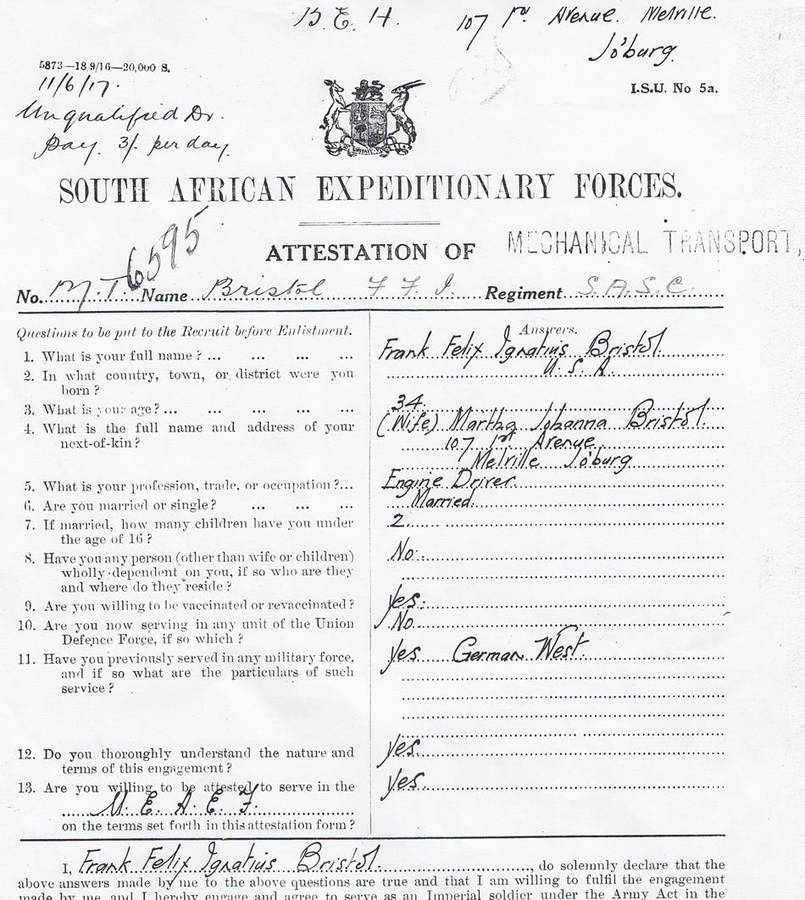 B. E. H.
107 1st Avenue. Melville.
Jo'burg.
5873—18/9/16—20,000 S.
I.S.U. No 5a.
11/6/17.
Unqualified Dr.
Pay. 3/- per day.
SOUTH AFRICAN EXPEDITIONARY FORCES.
6595
ATTESTATION OF MECHANICAL TRANSPORT,
No. M.T. Name Bristol F F I. Regiment S.A.S.C.
Questions to be put to the Recruit before Enlistment. Answers.
1. What is your full name ?... ... ... ... Frank Felix Ignatius Bristol.
2. In what country, town, or district were you U.S.A.
born ?
3. What is your age ?... ... ... ... ... 34.
4. What is the full name and address of your (Wife) Martha Johanna Bristol.
next-of-kin ? 107 1st Avenue
Melville Jo'burg
5. What is your profession, trade, or occupation ?... Engine Driver.
6. Are you married or single ? ... ... ... Married.
7. If married, how many children have you under 2.
the age of 16 ?
8. Have you any person (other than wife or children) No.
wholly dependent on you, if so who are they
and where do they reside ?
9. Are you willing to be vaccinated or revaccinated ? yes.
10. Are you now serving in any unit of the Union No
Defence Force, if so which ?
11. Have you previously served in any military force, yes German West.
and if so what are the particulars of such
service ?
12. Do you thoroughly understand the nature and yes.
terms of this engagement ?
13. Are you willing to be attested to serve in the yes.
M. E. A. E. F.
on the terms set forth in this attestation form ?
I, Frank Felix Ignatius Bristol. , do solemnly declare that the
above answers made by me to the above questions are true and that I am willing to fulfil the engagement
made by me, and I hereby engage and agree to serve as an Imperial soldier under the Army Act in the